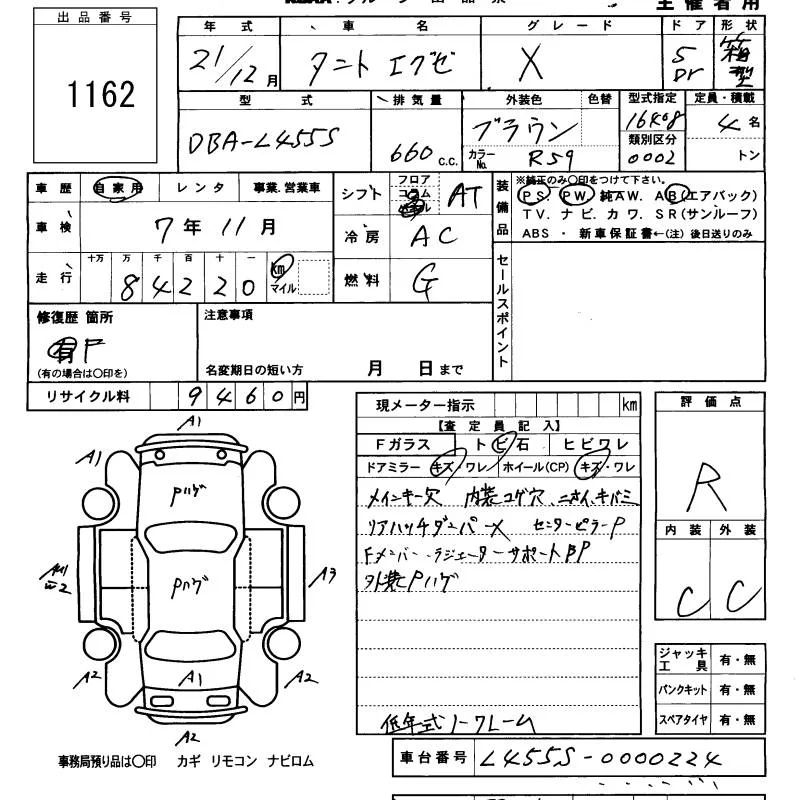 出品番号
1162
主催者用
年式 車名 グレード ドア 形状
21/12月 タント エグゼ X 5Dr 箱型
型式 排気量 外装色 色替 型式指定 定員・積載
DBA-L455S 660c.c. ブラウン カラーNo. R59 16408 類別区分 0002 4名 トン
車歴 自家用 レンタ 事業.営業車
車検 7年11月
走行 十万 万 千 百 十 一
84220 km マイル
シフト フロア コラム AT
冷房 AC
燃料 G
装備品
※純正のみ〇印をつけて下さい。
PS. PW. 純AW. AB(エアバック)
TV. ナビ. カワ. SR(サンルーフ)
ABS ・ 新車保証書←(注)後日送りのみ
セールスポイント
修復歴 箇所
有 F
(有の場合は〇印を)
注意事項
名変期日の短い方 月 日まで
リサイクル料 9460円
現メーター指示 km
【査定員記入】
Fガラス トビ石 ヒビワレ
ドアミラー キズ・ワレ ホイール(CP) キズ・ワレ
メインキー欠 内装コゲ穴、キバミ
リアハッチダンパーX センターピラーP
Fメンバー、ラジエーターサポートBP
外装Pハゲ
低年式ノークレーム
評価点
R
内装 外装
C C
ジャッキ工具 有・無
パンクキット 有・無
スペアタイヤ 有・無
A1
A1
Pハゲ
Pハゲ
A3
A2
A1
A2
A2
事務局預り品は〇印 カギ リモコン ナビロム
車台番号 L455S-0000224